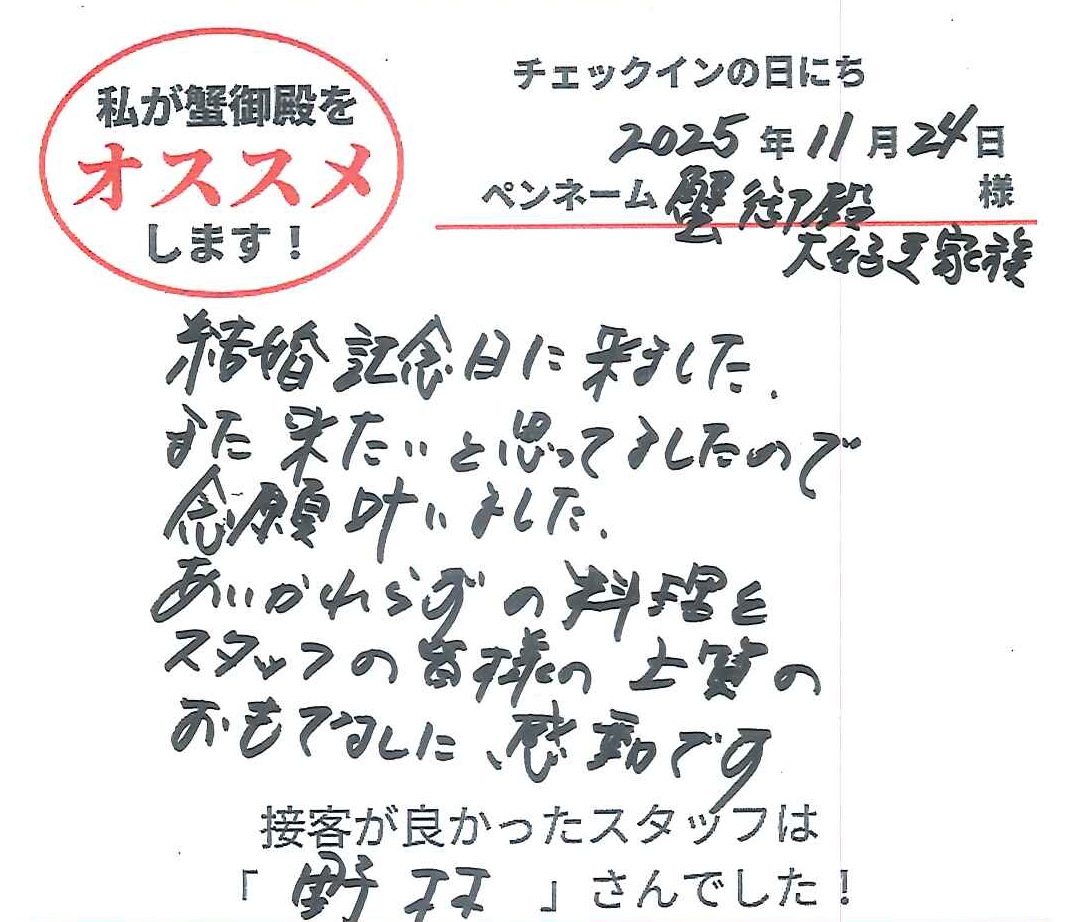 私が蟹御殿を
オススメ
します！
チェックインの日にち
2025年11月24日
ペンネーム 蟹御殿 様
大好き家族
結婚記念日に来ました.
また来たいと思ってましたので
念願叶いました.
あいかわらずの料理と
スタッフの皆様の上質の
おもてなしに、感動です
接客が良かったスタッフは
「野林」さんでした！